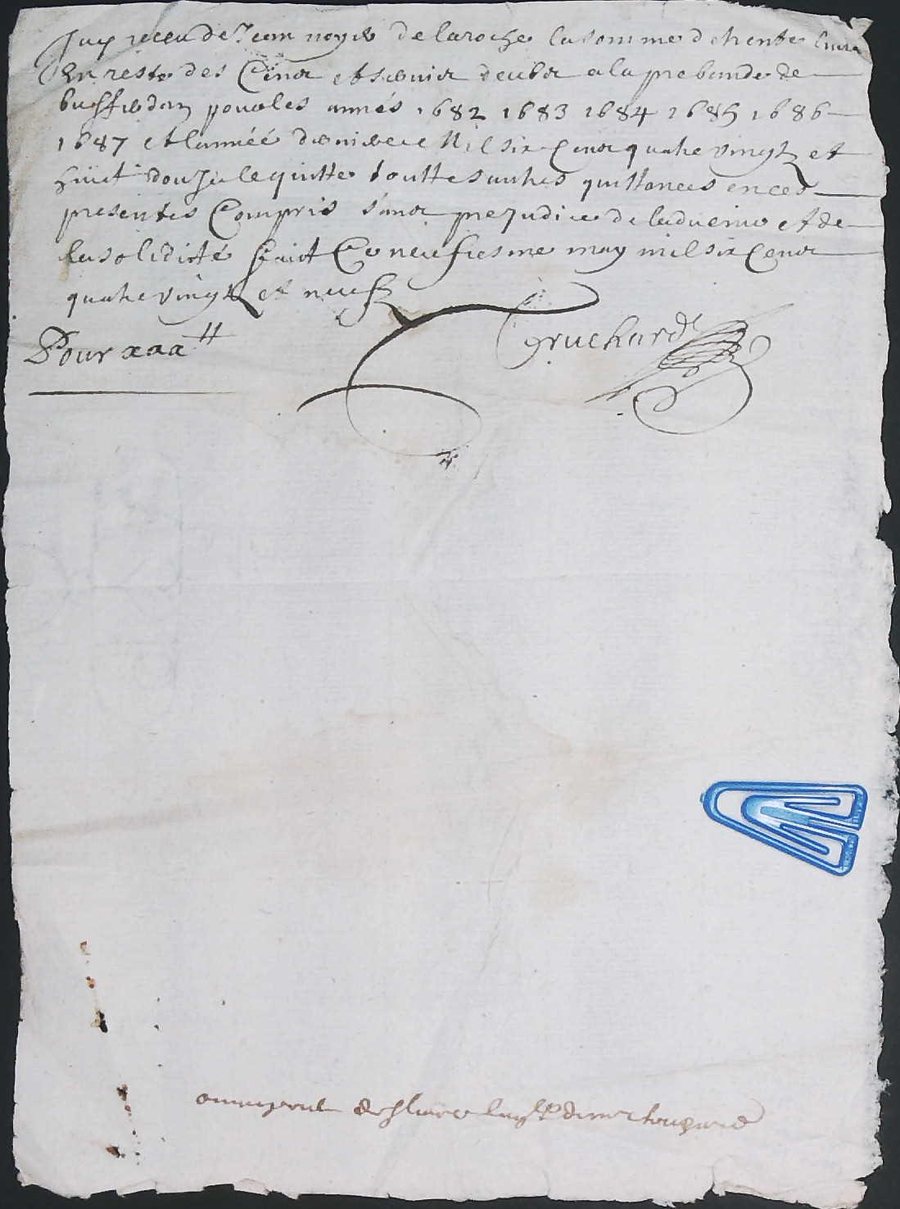 Jay receu de Jean noyer de laroche la somme de trente livre
En reste des Cens et servis deubz a la prebande de
bussedan pour les annés 1682 1683 1684 1685 1686
1687 et lannéé derniere Mil six Cens quatre vingt et
huit dont Je le quitte touttes autres quittances en ces
presentes Compris sans prejudice de et de
la solidité fait Ce neufiesme may mil six Cens
quatre vingt et neuf
Pour xxx tt
Gruchard